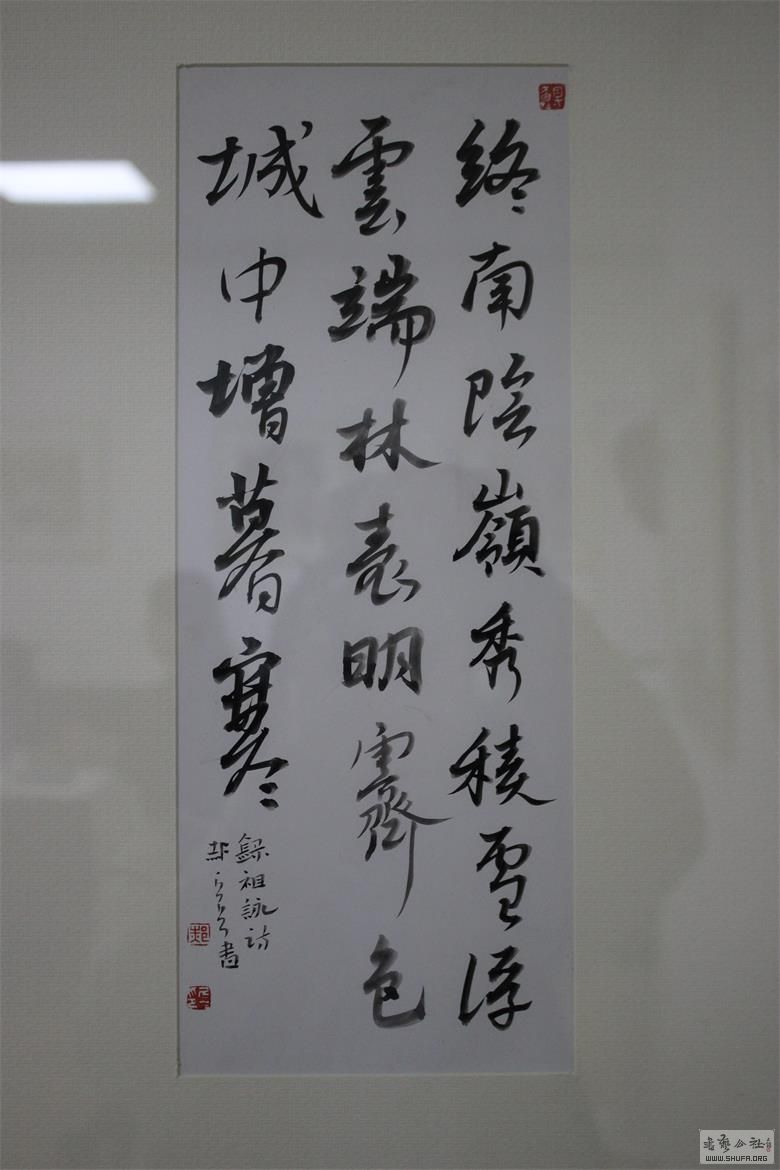 終南陰嶺秀積雪浮
雲端林表明霽色
城中增暮寒
錄祖詠詩
書
WWW.SHUFA.ORG